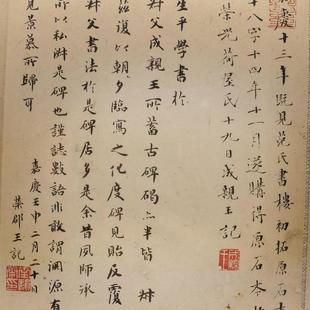 慶十三年既見范氏書樓初拓原石
十八字十四年十一月遂購得原石本
榮光荷屋氏十九日成親王記
生平學書於
叔父成親王所蓄古碑碣亦半皆 叔
復以朝夕臨寫之化度碑見貽反覆
叔父書法於是碑居多是余昔夙師承
所以私淑是碑也謹誌數語非敢謂淵源有
見景慕所歸可
嘉慶壬申二月二十日
榮郡王記